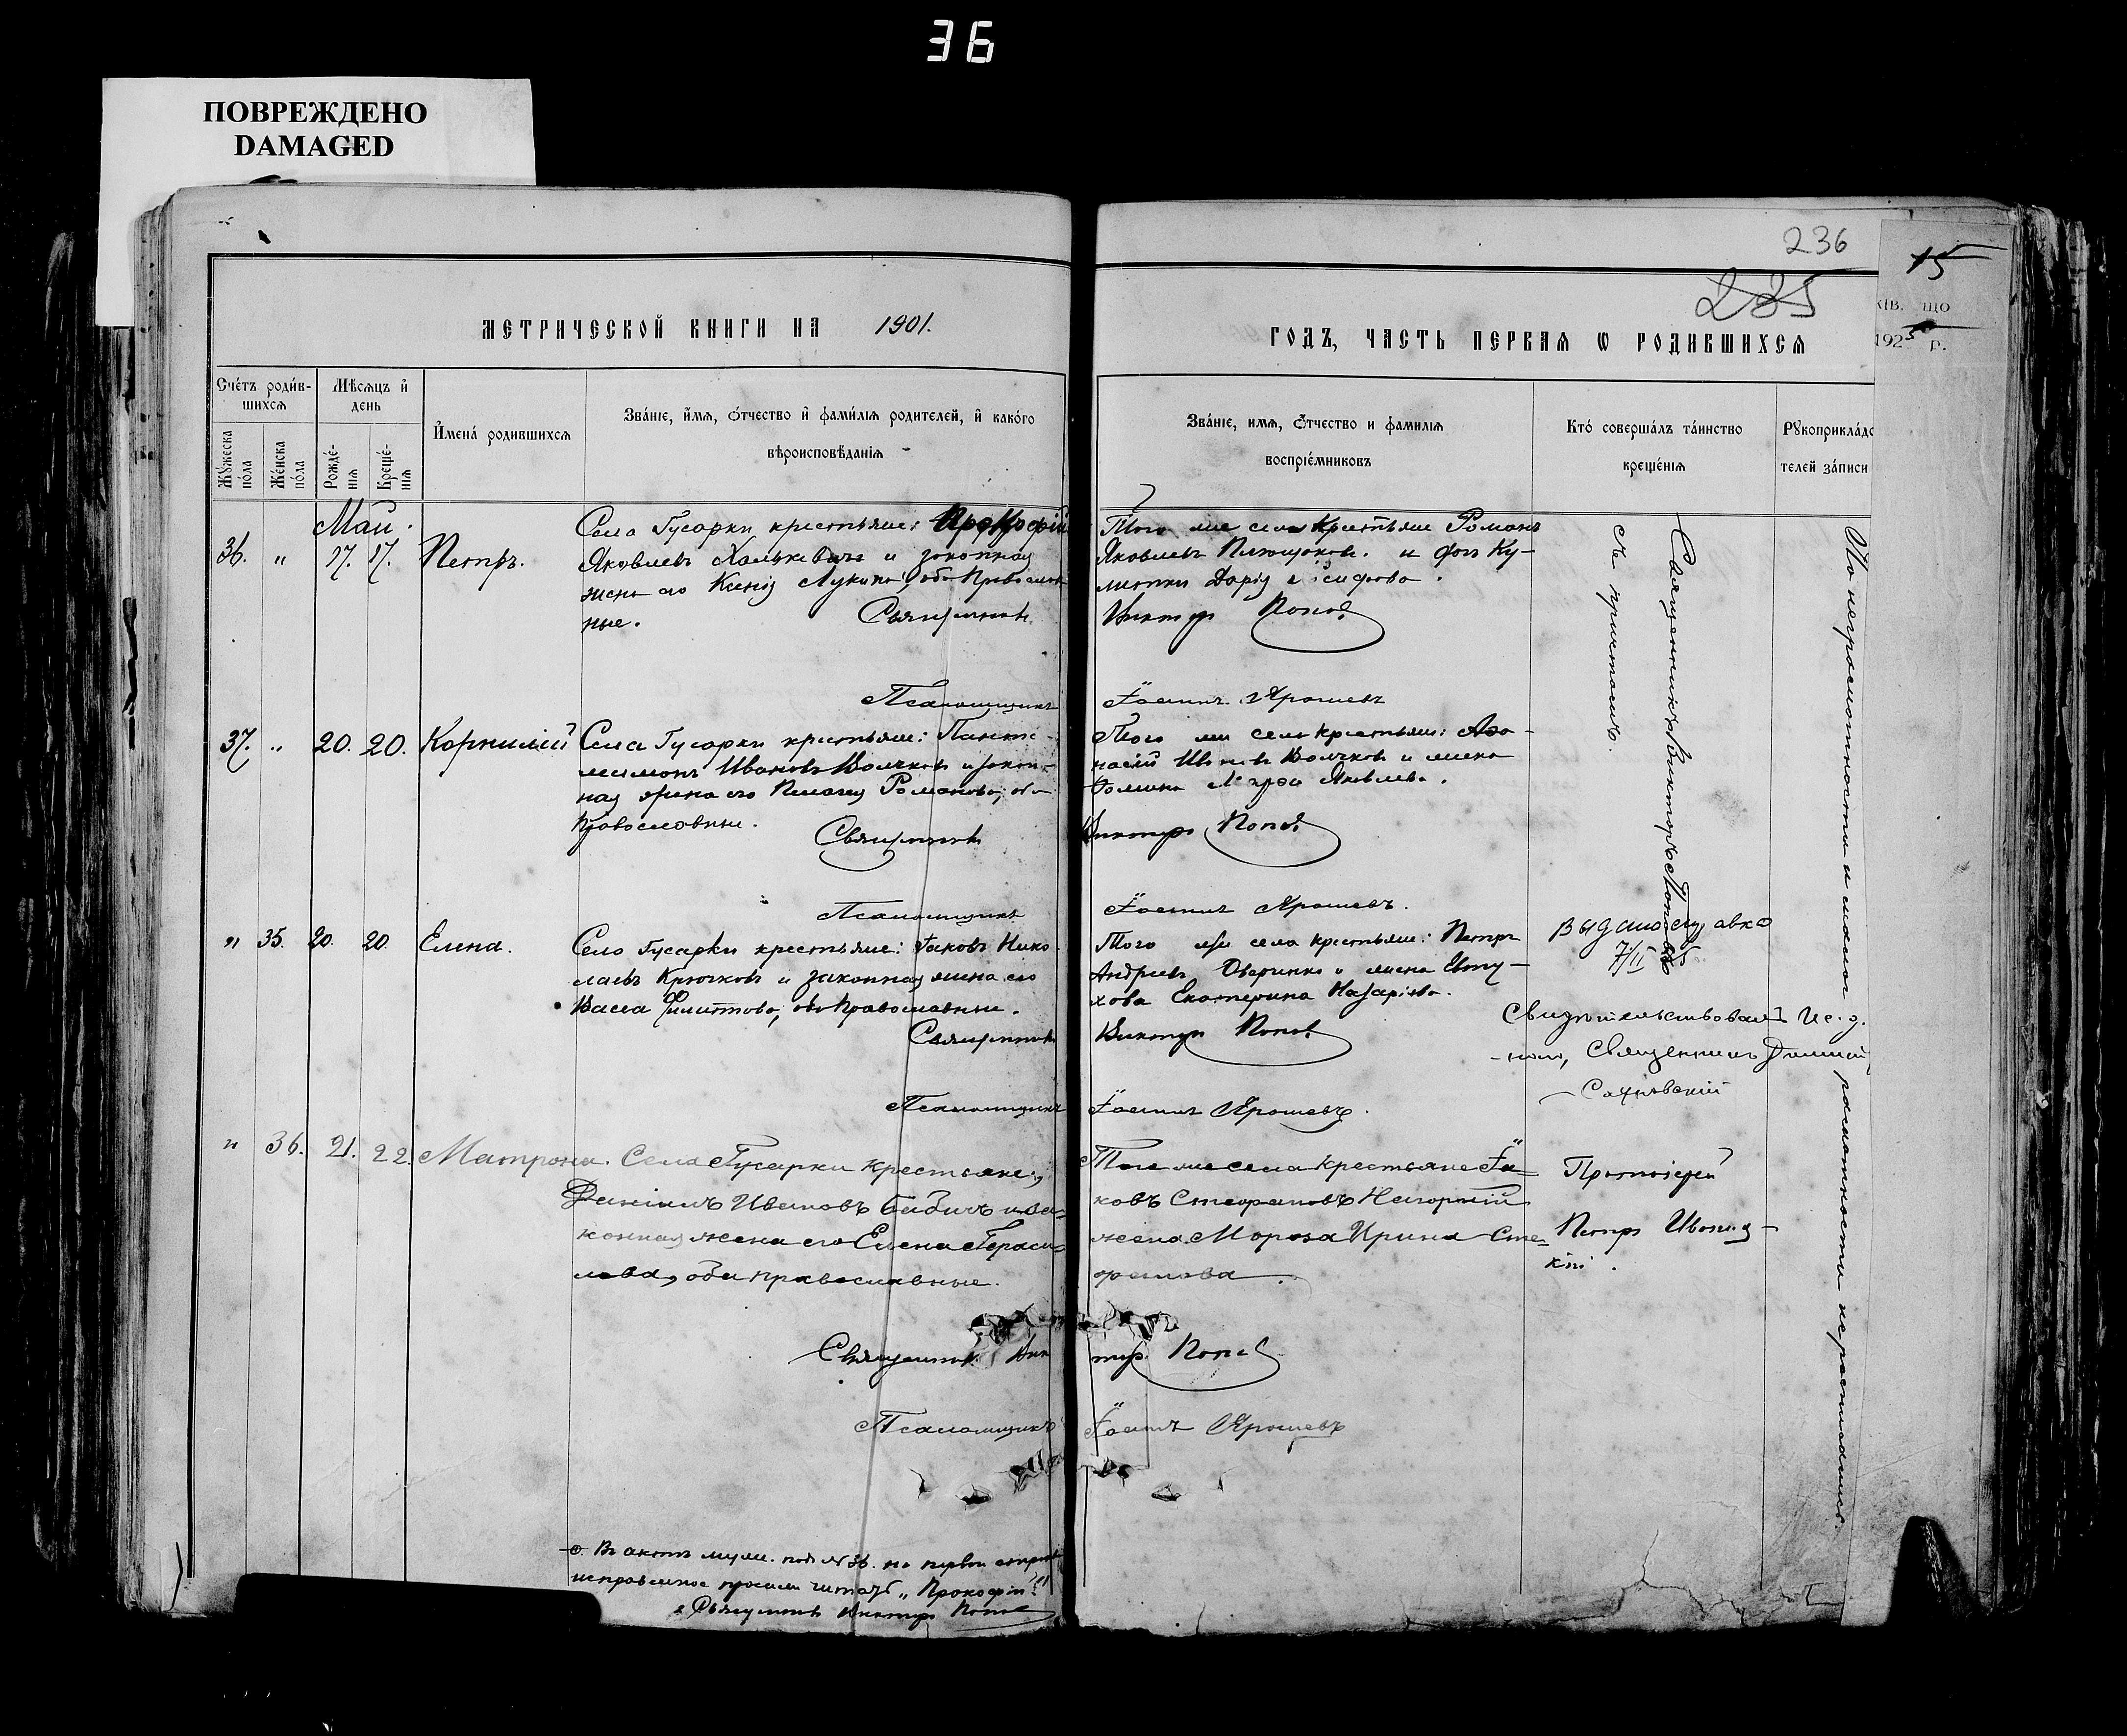 36
ПОВРЕЖДЕНО
DAMAGED
236
235
15
КІВ. ЩО
1925 р.
МЕТРИЧЕСКОЙ КНИГИ НА 1901.
ГОДЪ, ЧАСТЬ ПЕРВАЯ Ѡ РОДИВШИХСЯ
Счетъ родив-
шихся
Мѣсяцъ и
день
Мужеска
пола
Женска
пола
Рожде-
нія
Креще-
нія
Имена родившихся
Званіе, имя, отчество и фамилія родителей, и какого
вѣроисповѣданія
Званіе, имя, отчество и фамилія
воспріемниковъ
Кто совершалъ таинство
крещенія
Рукоприкладс
телей записи
Май.
36. „ 17. 17. Петръ.
Села Гусарки крестьяне: Прокофій
Яковлевъ Халькевичъ и законная
жена его Ксенія Лукина, оба Православ
ные.
Священникъ
Того же села крестьяне Романъ
Яковлевъ и
Дарія
Викторъ Поповъ
Псаломщикъ
Іоаннъ Ярошевъ
Священникъ Викторъ Поповъ
съ причтомъ.
По неграмотности и малой грамотности не росписались.
37. „ 20. 20. Корнилій
Села Гусарки крестьяне: Панте-
леимонъ Ивановъ Волчковъ и закон-
ная жена его Пелагея Романова, оба
Православные.
Священникъ
Того же села крестьяне: Афа-
насій Ивановъ Волчковъ и жена
Яковлева.
Викторъ Поповъ
Псаломщикъ
Іоаннъ Ярошевъ.
„ 35. 20. 20. Елена.
Села Гусарки крестьяне: Іаковъ Нико-
лаевъ Крючковъ и законная жена его
Васса Филиппова, оба Православные.
Священникъ
Того же села крестьяне: Петръ
Андреевъ Оверченко и жена Евту-
хова Екатерина Назаріева.
Викторъ Поповъ
Выдано справка
7/II
Свидѣтельствовалъ И. д.
Священникъ
Псаломщикъ
Іоаннъ Ярошевъ.
„ 36. 21. 22. Матрона.
Села Гусарки крестьяне:
Даніилъ Ивановъ Бабичъ и за-
конная жена его Елена Гераси-
мова, оба православные.
Того же села крестьяне Іа-
ковъ Стефановъ Нагорній
жена Мороза Ирина Сте-
фанова.
Протоіерей
Петръ
Священникъ Вик
торъ Поповъ
Псаломщикъ
Іоаннъ Ярошевъ
Въ актѣ муж. подъ № 36. на первой строкѣ
исправленное просимъ читать „Прокофій“.
Священникъ Викторъ Поповъ